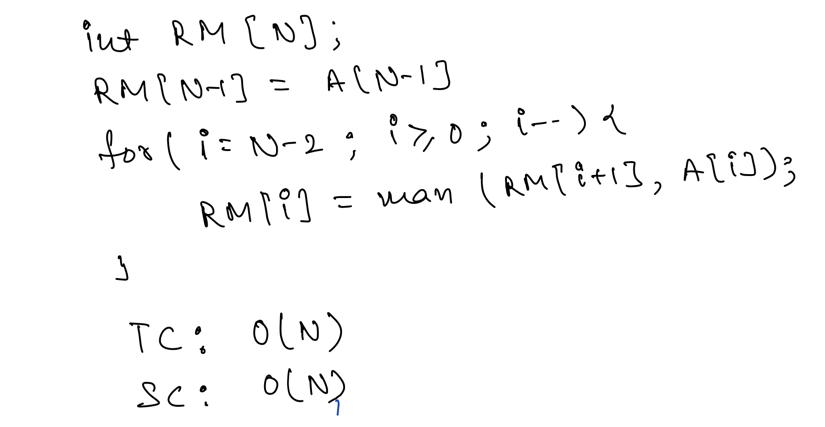 int RM[N];
RM[N-1] = A[N-1]
for( i = N-2 ; i ≥ 0 ; i-- ) {
RM[i] = max (RM[i+1], A[i]);
}
TC: O(N)
SC: O(N)